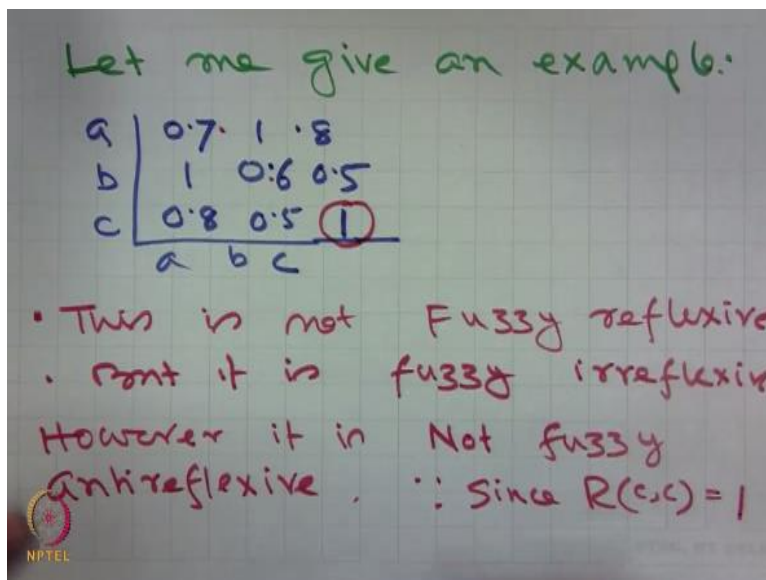 Let me give an example:
a | 0.7 1 .8
b | 1 0.6 0.5
c | 0.8 0.5 1
a b c
• This is not Fuzzy reflexive
• But it is fuzzy irreflexiv
However it is Not fuzzy
antireflexive. ∵ Since R(c,c) = 1
NPTEL